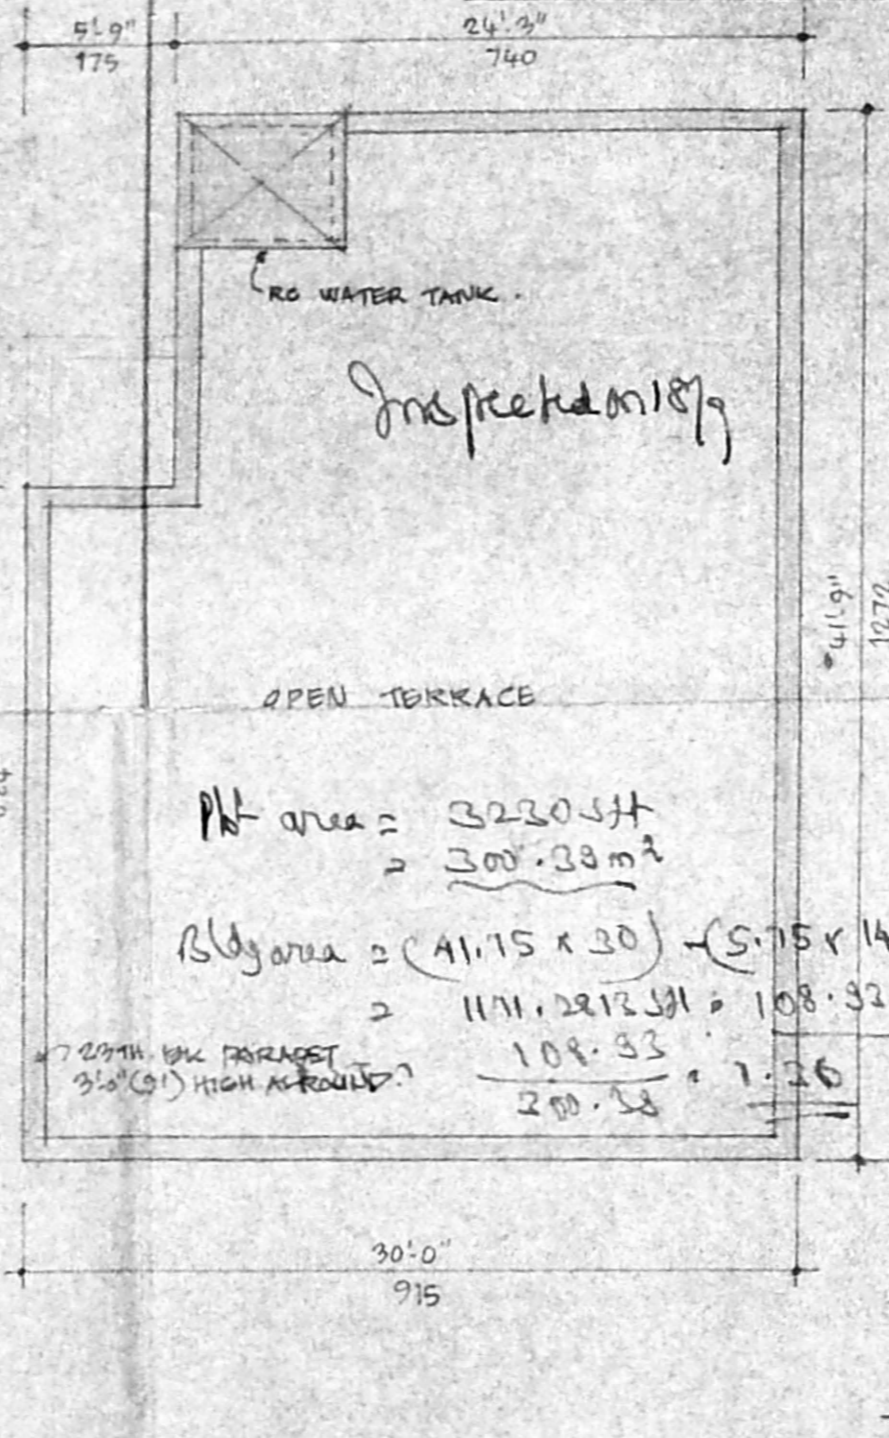 5'-9"
175
24'-3"
740
RC WATER TANK.
Inspected on 18/9
41'-9"
1272
OPEN TERRACE
Plot area = 3230 sft
= 300.38 m²
Bldg area = (41.75 x 30) - (5.75 x 14
= 1171.2813 sft = 108.93
23TH BK PARAPET
3'-0" (91) HIGH ALROUND.
108.93
300.38
= 1.36
30'-0"
915